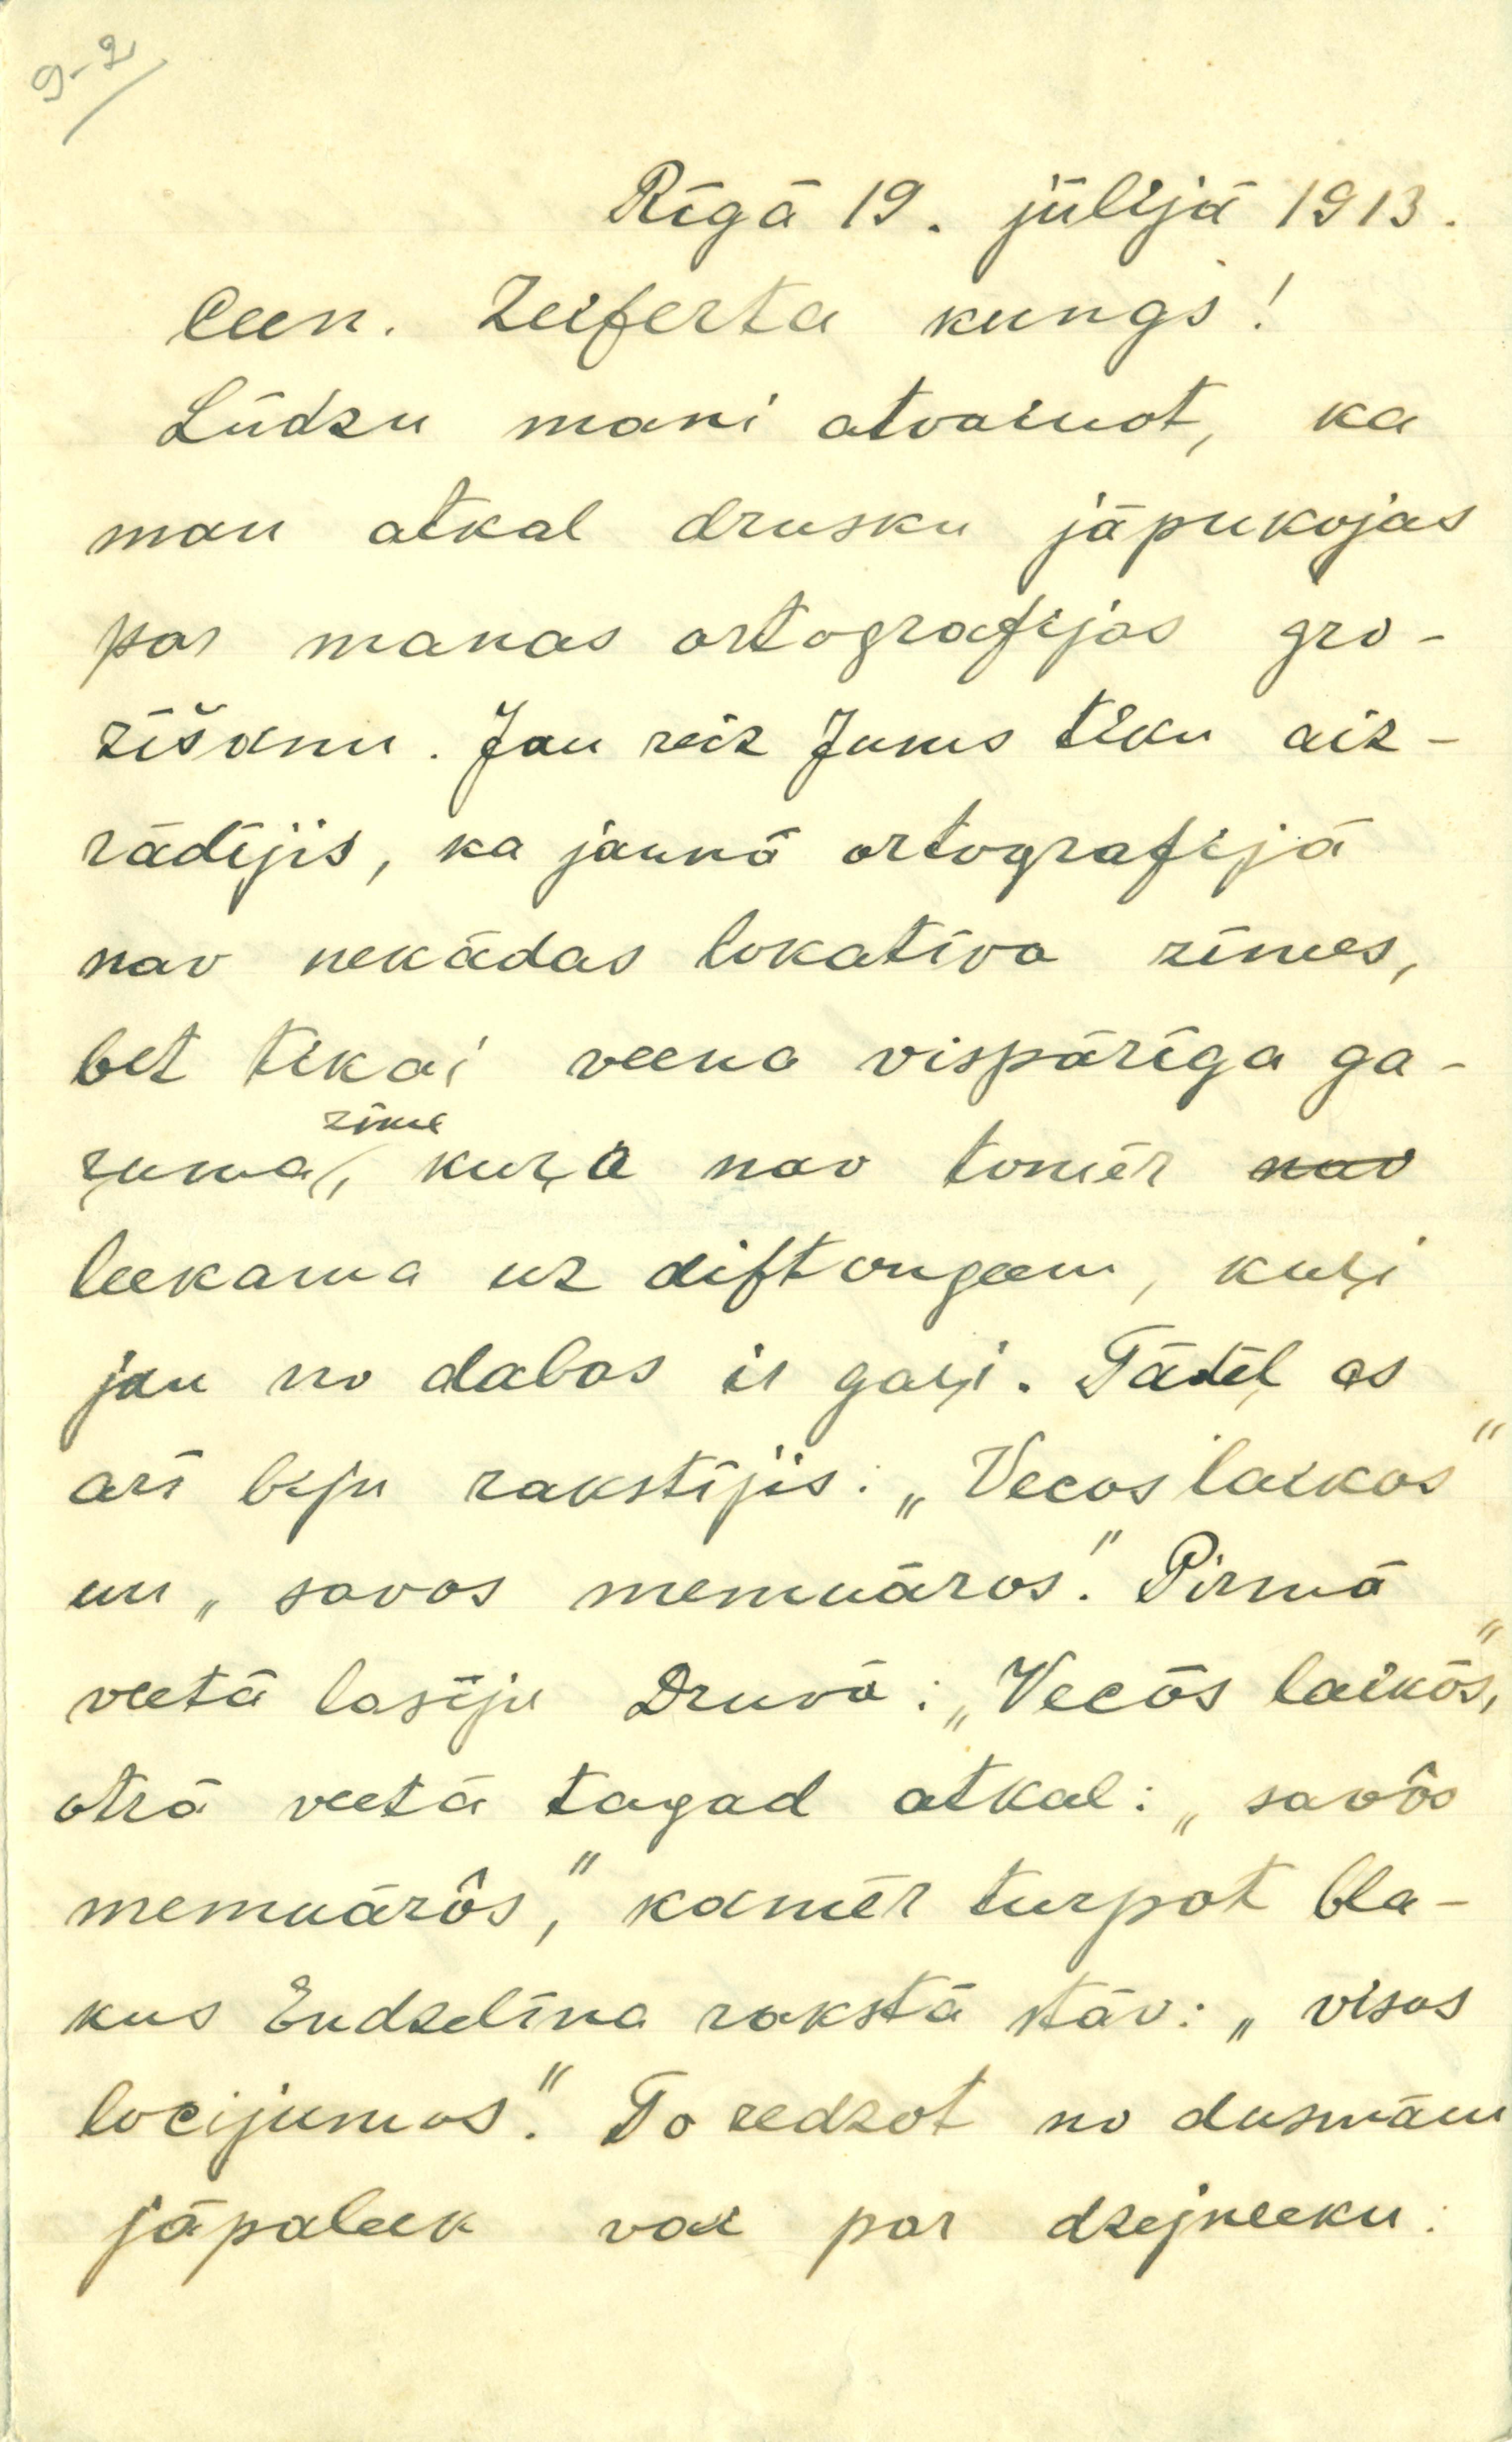 9-2
Rīgā 19. jūlijā 1913.
Ceen. Zeiferta kungs!
Lūdzu mani atvainot, ka
man atkal drusku jāpukojas
par manas ortografijas gro-
zīšanu. Jau reiz Jums tiku aiz-
rādījis, ka jaunā ortografijā
nav nekādas lokatīva zīmes,
bet tikai veena vispārīga ga-
zīme
ŗuma, kuŗa nav tomēr nav
leekama uz diftongeem, kuŗi
jau no dabas ir gaŗi. Tādēļ es
arī biju rakstījis: „Vecos laikos"
un „savos memuāros". Pirmā
veetā lasīju Druvā: „Vecōs laikōs",
otrā veetā tagad atkal: „savôs
memuārôs", kamēr turpat bla-
kus Endzelīna rakstā stāv: „visos
locijumos". To redzot no dusmām
jāpaleek vai par dzejneeku: